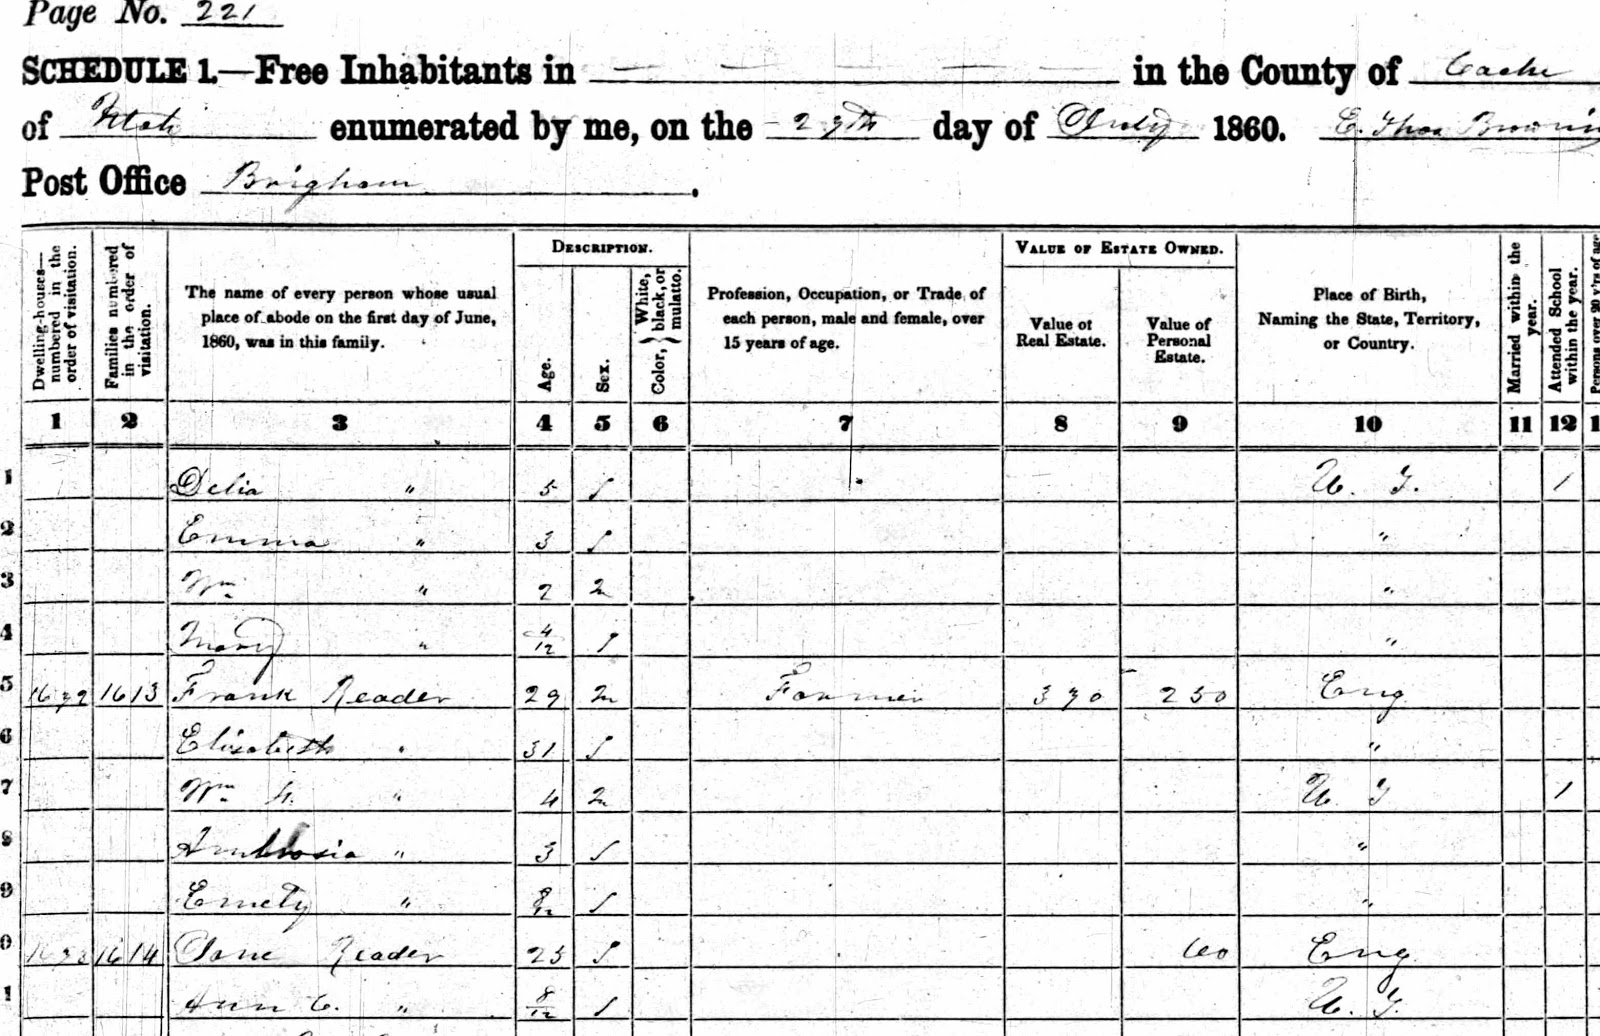 Page No. 221
SCHEDULE 1.—Free Inhabitants in — — — — — in the County of Cache
of Utah enumerated by me, on the 27th day of July 1860. E. Thos Brownin
Post Office Brigham .
Dwelling-houses—numbered in the order of visitation.
Families numbered in the order of visitation.
The name of every person whose usual place of abode on the first day of June, 1860, was in this family.
DESCRIPTION.
Age.
Sex.
Color, { White, black, or mulatto.
Profession, Occupation, or Trade of each person, male and female, over 15 years of age.
VALUE OF ESTATE OWNED.
Value of Real Estate.
Value of Personal Estate.
Place of Birth, Naming the State, Territory, or Country.
Married within the year.
Attended School within the year.
Persons over 20 y'rs of age
1 2 3 4 5 6 7 8 9 10 11 12 1
1 Delia " 5 f U. T. 1
2 Emma " 3 f "
3 Wm " 2 m "
4 Mary " 4/12 f "
5 1672 1613 Frank Reader 29 m Farmer 370 250 Eng
6 Elizabeth " 31 f "
7 Wm H. " 4 m U T 1
8 Ambrosia " 3 f "
9 " 8/12 f "
0 1673 1614 Jane Reader 23 f 60 Eng
1 Ann E. " 8/12 f U. T.